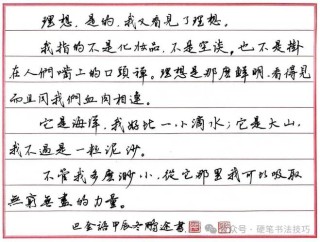 理想，是的，我又看見了理想。
我指的不是化妆品，不是空谈，也不是掛
在人們嘴上的口頭禅。理想是那麼鮮明，看得見
而且同我們血肉相連。
它是海洋，我好比一小滴水；它是大山，
我不過是一粒泥沙。
不管我多麼渺小，從它那里我可以吸取
無窮無盡的力量。
巴金語甲辰冬鵬途書
公众号·硬笔书法技巧